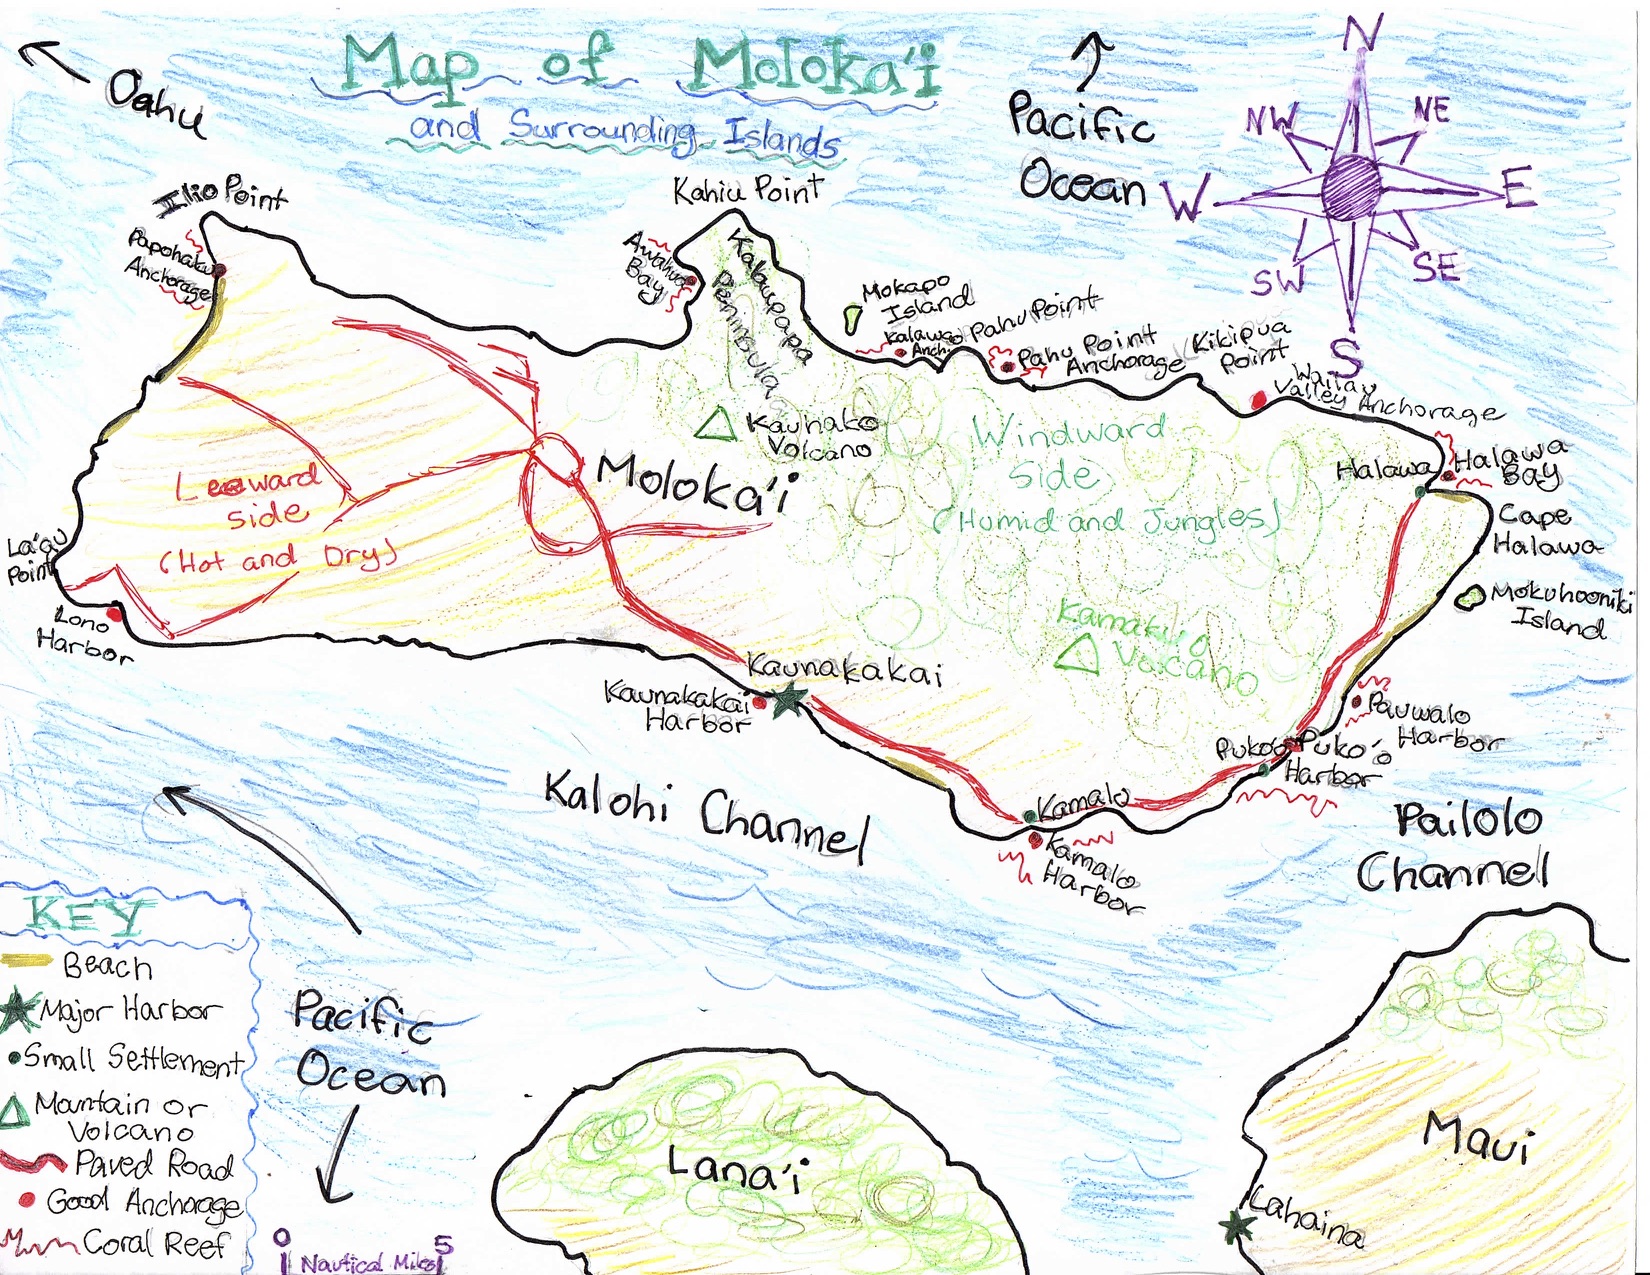 Map of Moloka'i
and Surrounding Islands
Oahu
Pacific
Ocean
N
NW
NE
W
E
SW
SE
S
Ilio Point
Papohaku
Anchorage
Kahiu Point
Awahua
Bay
Kalaupapa
Peninsula
Mokapo
Island
Kalawao
Anch.
Pahu Point
Pahu Point
Anchorage
Kikipua
Point
Valley Anchorage
Kauhako
Volcano
Windward
Side
(Humid and Jungles)
Moloka'i
Leeward
side
(Hot and Dry)
Halawa
Halawa
Bay
Cape
Halawa
Mokuhooniki
Island
La'au
Point
Lono
Harbor
Volcano
Kaunakakai
Kaunakakai
Harbor
Pauwalo
Harbor
Puko'o
Puko'o
Harbor
Kamalo
Kamalo
Harbor
Kalohi Channel
Pailolo
Channel
KEY
Beach
Major Harbor
Small Settlement
Mantain or
Volcano
Paved Road
Good Anchorage
Coral Reef
Pacific
Ocean
0
5
Nautical Miles
Lana'i
Maui
Lahaina